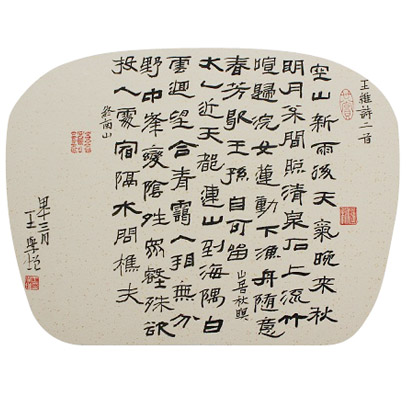 王維詩二首
空山新雨後天氣晚來秋
明月松間照清泉石上流竹
喧歸浣女蓮動下漁舟隨意
春芳歇王孫自可留
山居秋暝
太乙近天都連山到海隅白
雲迴望合青靄入看無分
野中峰變陰晴眾壑殊欲
投人處宿隔水問樵夫
終南山
甲午三月
王學